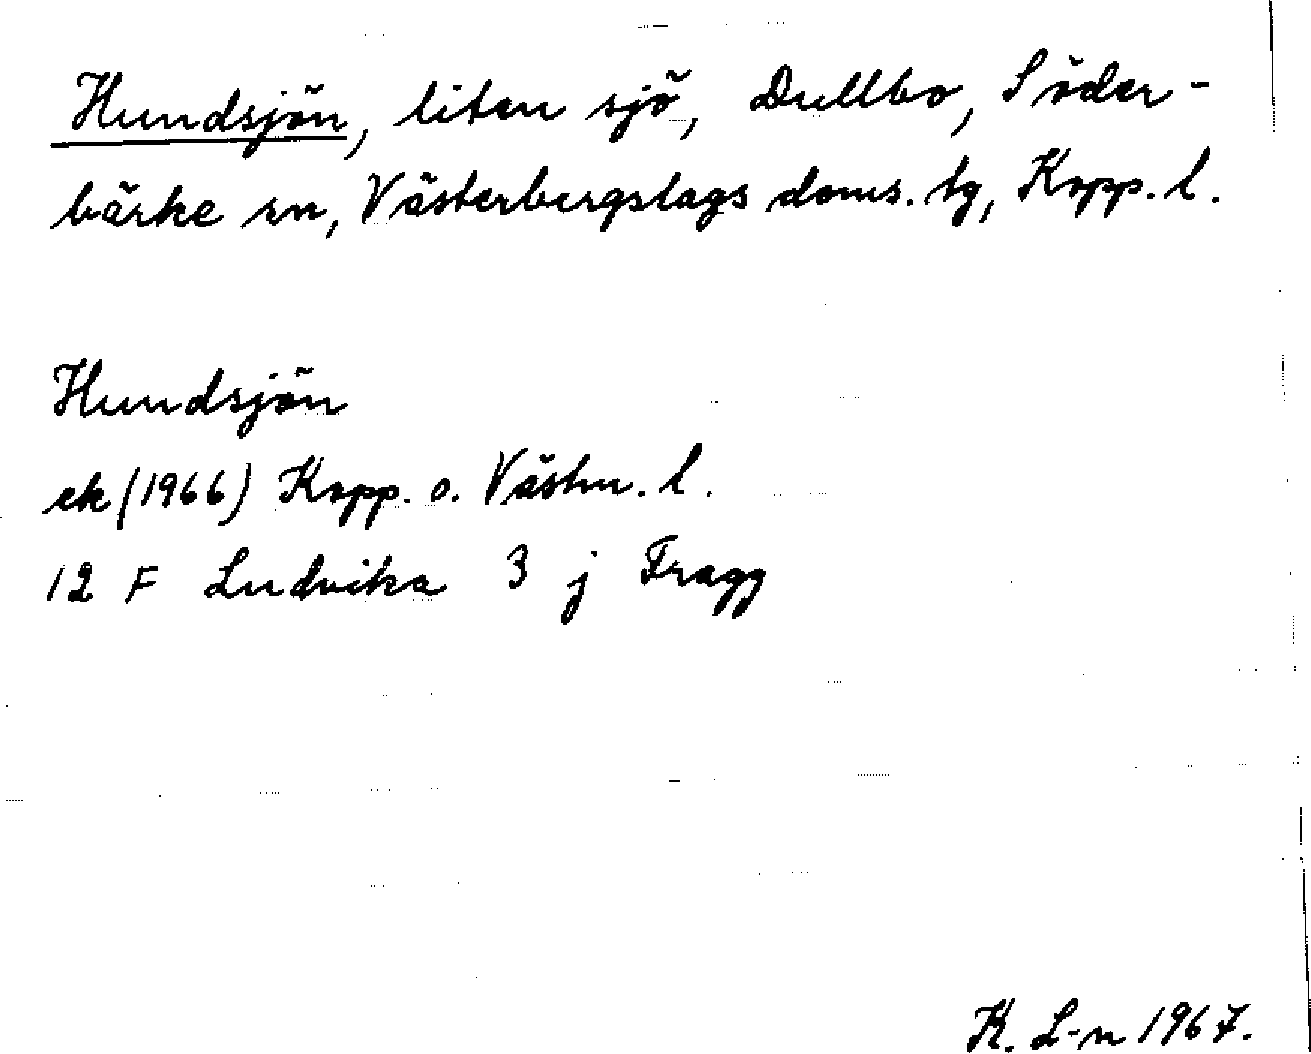 Hundsjön, liten sjö, Dullbo, Söder-
bärke sn, Västerbergslags doms. tg, Kopp. l.
Hundsjön
ek (1966) Kopp. o. Västm. l.
12 F Ludvika 3 j Fragg
K. L-n 1967.